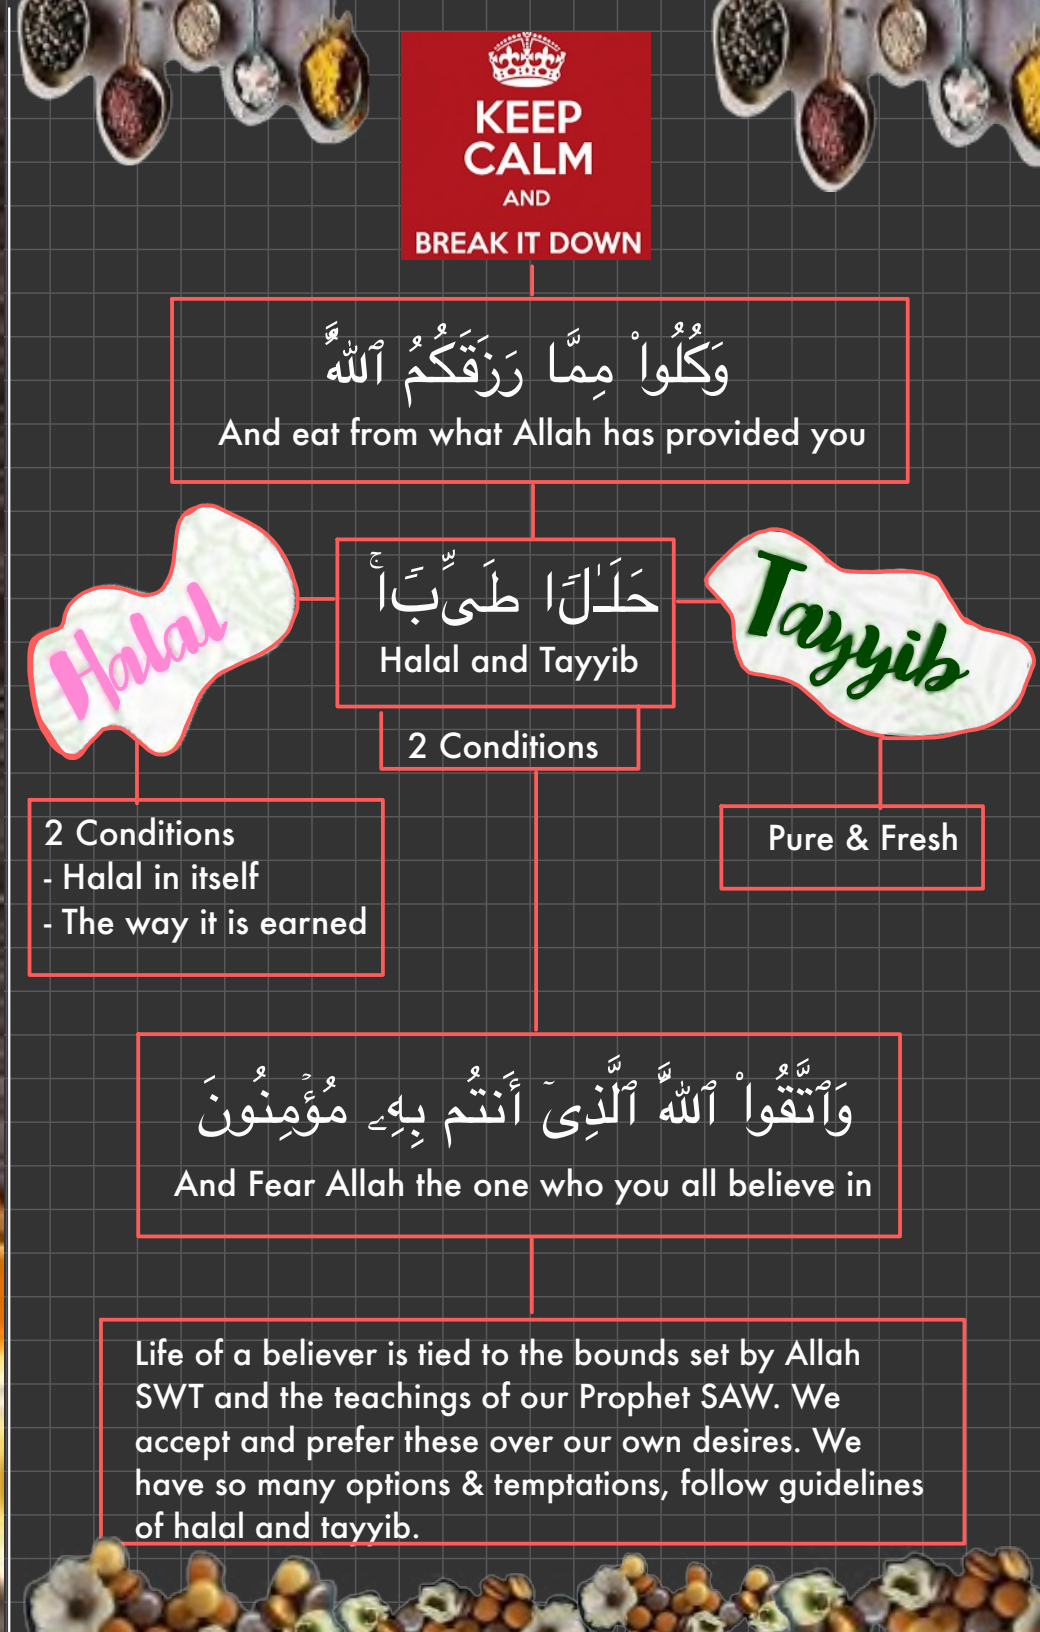 KEEP
CALM
AND
BREAK IT DOWN
وَكُلُوا۟ مِمَّا رَزَقَكُمُ ٱللَّهُ
And eat from what Allah has provided you
حَلَـٰلًۭا طَيِّبًۭا ۚ
Halal and Tayyib
Halal
Tayyib
2 Conditions
2 Conditions
- Halal in itself
- The way it is earned
Pure & Fresh
وَٱتَّقُوا۟ ٱللَّهَ ٱلَّذِىٓ أَنتُم بِهِۦ مُؤْمِنُونَ
And Fear Allah the one who you all believe in
Life of a believer is tied to the bounds set by Allah
SWT and the teachings of our Prophet SAW. We
accept and prefer these over our own desires. We
have so many options & temptations, follow guidelines
of halal and tayyib.